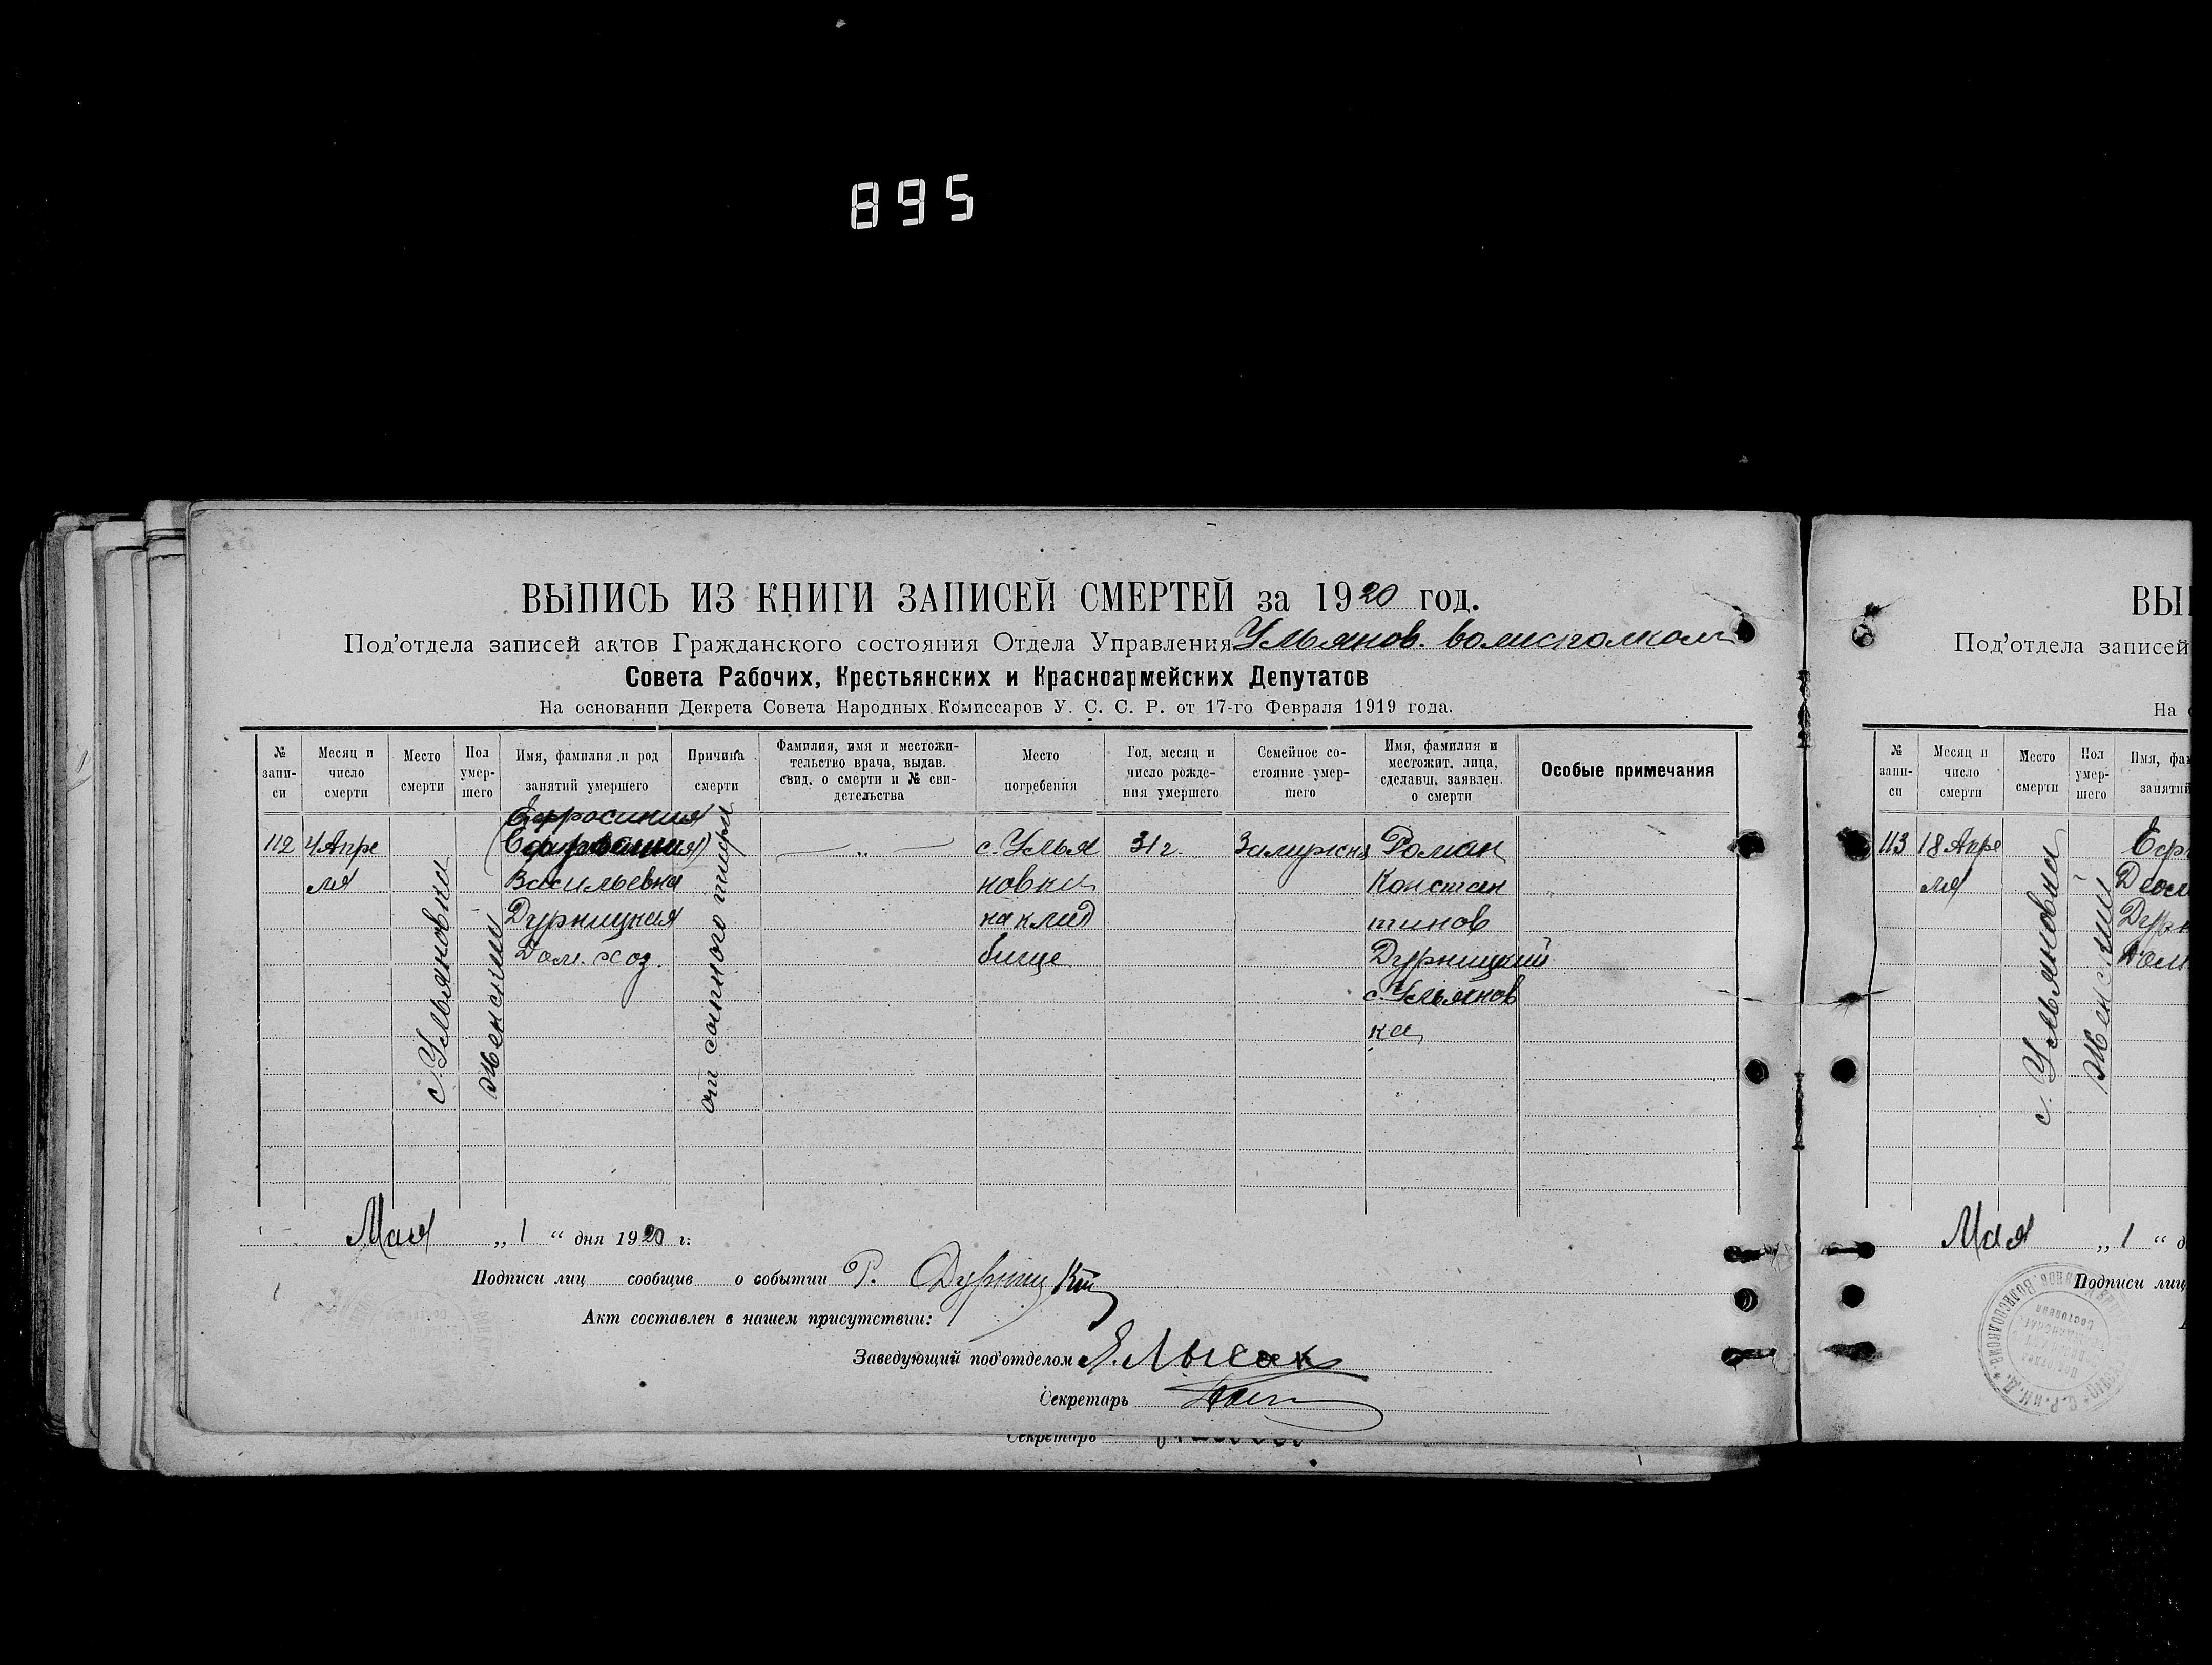 895
ВЫПИСЬ ИЗ КНИГИ ЗАПИСЕЙ СМЕРТЕЙ за 1920 год.
Под'отдела записей актов Гражданского состояния Отдела Управления Ульянов. волисполком
Совета Рабочих, Крестьянских и Красноармейских Депутатов
На основании Декрета Совета Народных Комиссаров У. С. С. Р. от 17-го Февраля 1919 года.
№ запи-си
Месяц и число смерти
Место смерти
Пол умер-шего
Имя, фамилия и род занятий умершего
Причина смерти
Фамилия, имя и местожи-тельство врача, выдав. свид. о смерти и № сви-детельства
Место погребения
Год, месяц и число рожде-ния умершего
Семейное со-стояние умер-шего
Имя, фамилия и местожит. лица, сделавш. заявлен. о смерти
Особые примечания
112
4 Апре
ля
с. Ульяновка
Женский
Ефросиния
Васильевна
Дурницкая
Дом. хоз.
от сыпного тифа
— „ —
с. Улья
новка
на клад
бище
31 г.
Замужня
Роман
Констан
тинов
Дурницкий
с. Ульянов
ка
Мая „ 1 “ дня 1920 г.
Подписи лиц сообщив о событии Р. Дурницкий
Акт составлен в нашем присутствии:
Заведующий под'отделом Я. Лысак
Секретарь
Секретарь
ВЫ
Под'отдела записей
На
№ запи-си
Месяц и число смерти
Место смерти
Пол умер-шего
Имя, фа
занятий
113
18 Апре
ля
с. Ульяновка
Женский
Еф
Дурн
Дом
Мая „ 1 “ д
Подписи лиц